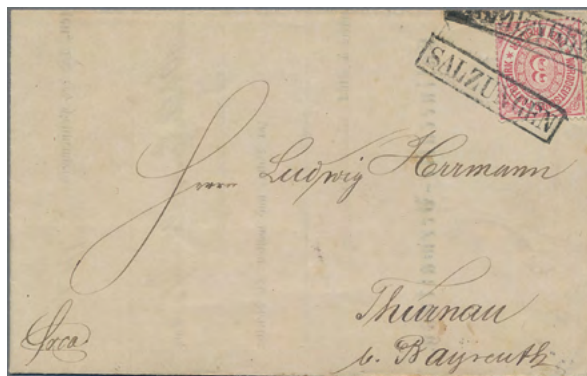 SALZUNGEN
Herrn Ludwig Herrmann
Thurnau
b. Bayreuth
frco